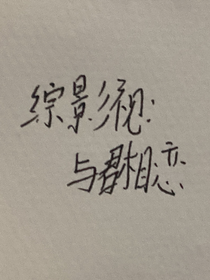 综影视:
与君相恋